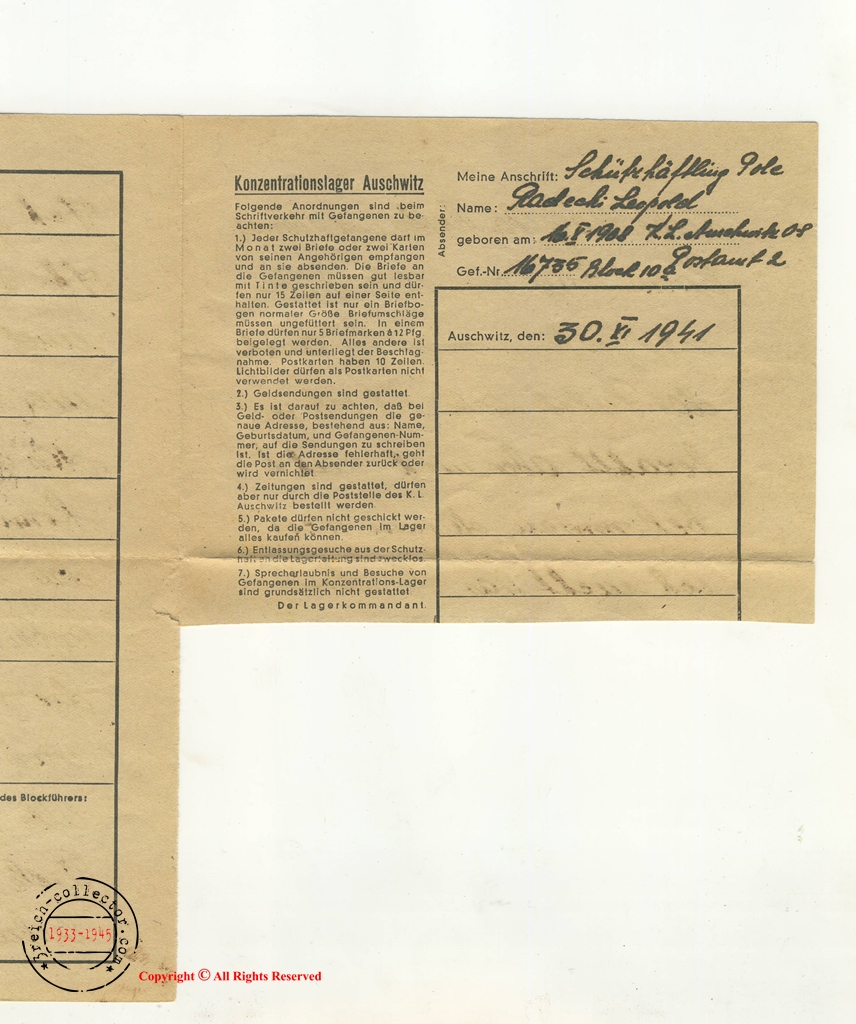 Konzentrationslager Auschwitz
Folgende Anordnungen sind beim
Schriftverkehr mit Gefangenen zu be-
achten:
1.) Jeder Schutzhaftgefangene darf im
Monat zwei Briefe oder zwei Karten
von seinen Angehörigen empfangen
und an sie absenden. Die Briefe an
die Gefangenen müssen gut lesbar
mit Tinte geschrieben sein und dür-
fen nur 15 Zeilen auf einer Seite ent-
halten. Gestattet ist nur ein Briefbo-
gen normaler Größe Briefumschläge
müssen ungefüttert sein. In einem
Briefe dürfen nur 5 Briefmarken à 12 Pfg
beigelegt werden. Alles andere ist
verboten und unterliegt der Beschlag-
nahme. Postkarten haben 10 Zeilen.
Lichtbilder dürfen als Postkarten nicht
verwendet werden.
2.) Geldsendungen sind gestattet
3.) Es ist darauf zu achten, daß bei
Geld- oder Postsendungen die ge-
naue Adresse, bestehend aus: Name,
Geburtsdatum, und Gefangenen-Num-
mer, auf die Sendungen zu schreiben
ist. Ist die Adresse fehlerhaft, geht
die Post an den Absender zurück oder
wird vernichtet
4.) Zeitungen sind gestattet, dürfen
aber nur durch die Poststelle des K. L.
Auschwitz bestellt werden
5.) Pakete dürfen nicht geschickt wer-
den, da die Gefangenen im Lager
alles kaufen können.
6.) Entlassungsgesuche aus der Schutz-
haft an die Lagerleitung sind zwecklos.
7.) Sprecherlaubnis und Besuche von
Gefangenen im Konzentrations-Lager
sind grundsätzlich nicht gestattet
Der Lagerkommandant.
Absender:
Meine Anschrift: Schutzhäftling Pole
Name: Radecki Leopold
geboren am: 16.V.1908 K.L. Auschwitz OS
Gef.-Nr. 16735 Block 10a Postamt 2
Auschwitz, den: 30. XI 1941
des Blockführers:
3reich-collector.com
1933-1945
Copyright © All Rights Reserved